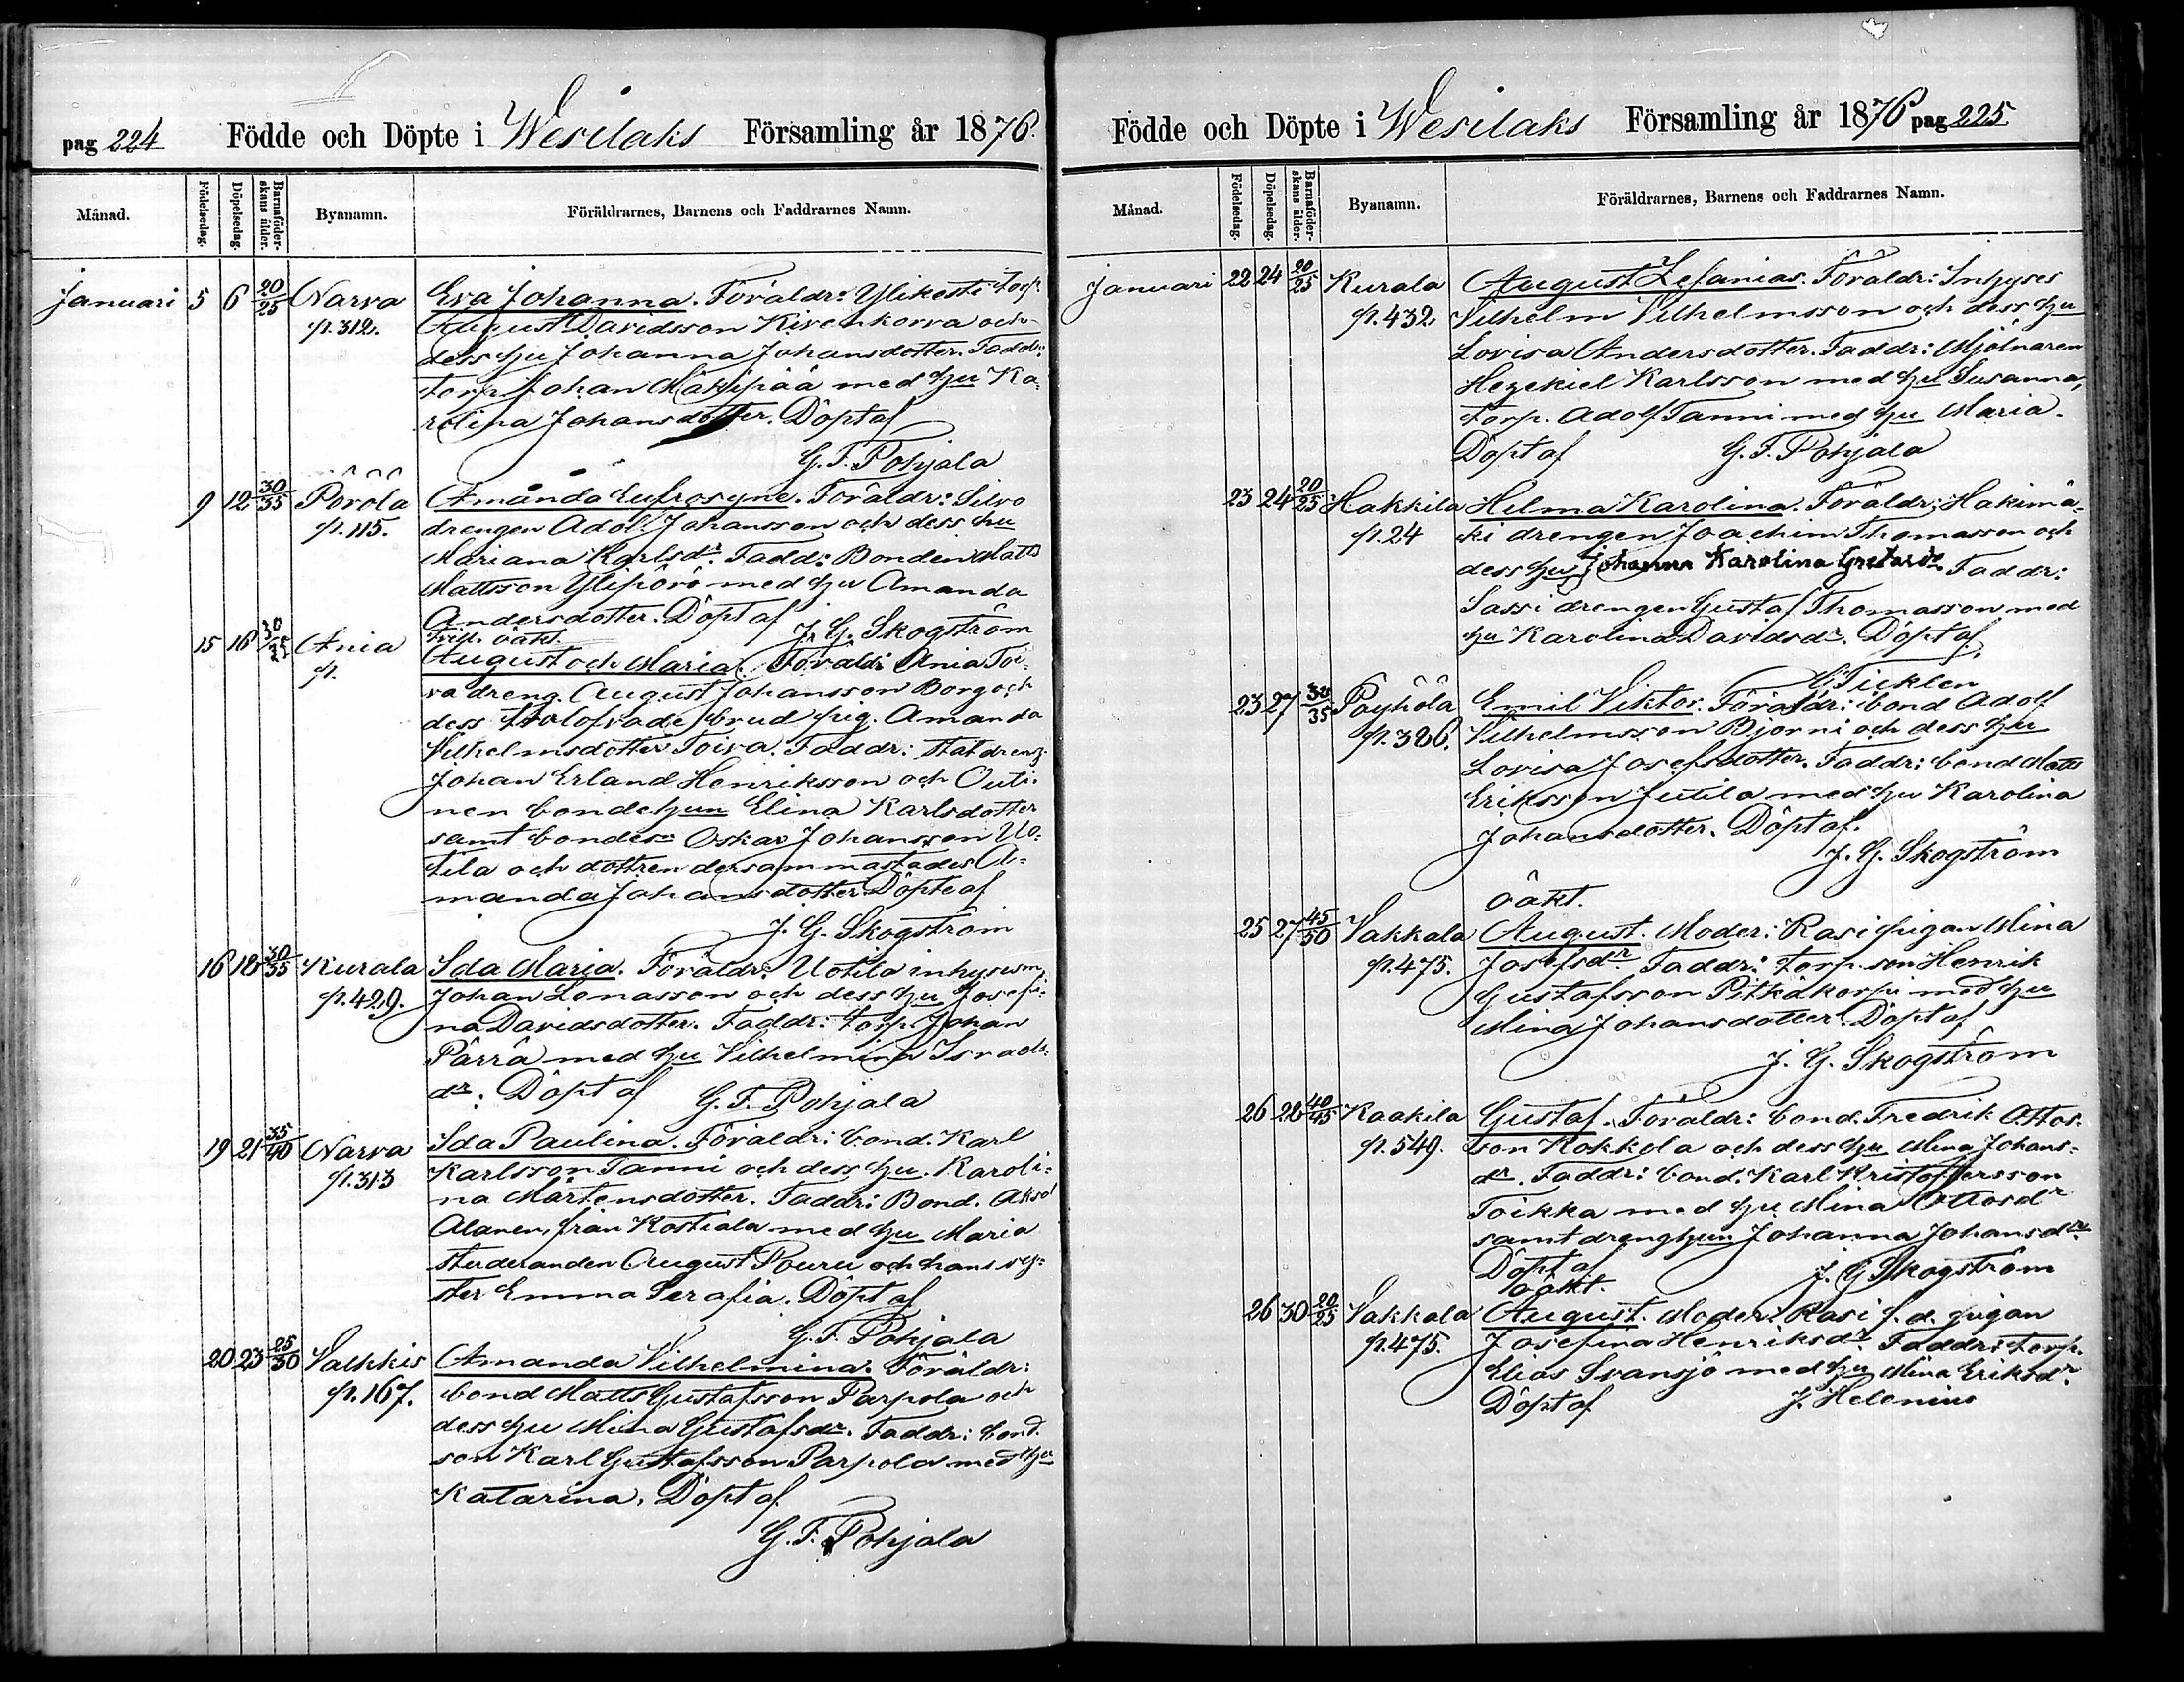 pag 224 Födde och Döpte i Wesilaks Församling år 1876.
Månad. Födelsedag. Döpelsedag. Barnaföder-skans ålder. Byanamn. Föräldrarnes, Barnens och Faddrarnes Namn.
Januari 5 6 20/25 Narva Eva Johanna. Föräldr: Ylikesti Torp.
p. 312. August Davidsson Kivenkorva och
dess hu Johanna Johansdotter. Fadd:
torp Johan Mäkipää med hu Ka-
rolina Johansdotter. Döpt af
G. F. Pohjala
9 12 30/35 Pöröla Amanda Eufrosyne. Föräldr: Silvo
p. 115. drengen Adolf Johansson och dess hu
Mariana Karlsdr. Fadd: Bonden Matts
Mattsson Ylipörö med hu Amanda
Andersdotter. Döpt af J. G. Skogström
tvill. oäkt.
15 16 30/35 Ania August och Maria. Föräldr: Ania Toi-
p. va dreng. August Johansson Borg och
dess trolofvade brud pig. Amanda
Vilhelmsdotter Toiva. Faddr: Statdreng.
Johan Erland Henriksson och Outi-
nen bondehun Elina Karlsdotter
samt bondes: Oskar Johansson Uo-
tila och dottren dersammastädes A-
manda Johansdotter Döpte af
J. G. Skogström
16 18 30/35 Kurala Ida Maria. Föräldr: Uotila inhysesm.
p. 429. Johan Lenasson och dess hu Josefi-
na Davidsdotter. Faddr: torp. Johan
Pärrä med hu Vilhelmina Israels-
dr. Döpt af G. F. Pohjala
19 21 35/40 Narva Ida Paulina. Föräldr: bond. Karl
p. 313 Karlsson Tanni och dess hu. Karoli-
na Mårtensdotter. Faddr: Bond. Aksel
Alanen, från Kostiala med hu Maria
studeranden August Pouru och hans sy-
ster Emma Serafia. Döpt af
G. F. Pohjala
20 23 25/30 Valkkis Amanda Vilhelmina. Föräldr:
p. 167. bond Matts Gustafsson Parpola och
dess hu Mina Gustafsdr. Faddr: bond.
son Karl Gustafsson Parpola med hu
Katarina. Döpt af
G. F. Pohjala
Födde och Döpte i Wesilaks Församling år 1876 pag 225
Månad. Födelsedag. Döpelsedag. Barnaföder-skans ålder. Byanamn. Föräldrarnes, Barnens och Faddrarnes Namn.
Januari 22 24 20/25 Kurala August Zefanias. Föräldr: Inhyses
p. 432. Vilhelm Vilhelmsson och dess hu
Lovisa Andersdotter. Faddr: Mjölnaren
Hezekiel Karlsson med hu Susanna,
torp. Adolf Tanni med hu Maria.
Döpt af G. F. Pohjala
23 24 20/25 Hakkila Helma Karolina. Föräldr: Hakimä-
p. 24 ki drengen Joachim Thomasson och
dess hu Johanna Karolina Gustavsdr. Faddr:
Sassi drengen Gustaf Thomasson med
hu Karolina Davidsdr. Döpt af
G. Ticklen
23 27 30/35 Pöyhölä Emil Viktor. Föräldr: bond Adolf
p. 386. Vilhelmsson Bjorni och dess hu
Lovisa Josefsdotter. Faddr: bond Matts
Eriksson Jutila med hu Karolina
Johansdotter. Döpt af.
J. G. Skogström
oäkt.
25 27 45/50 Vakkala August. Moder: Rasi pigan Mina
p. 475. Josefsdr Faddr: Torp. son Henrik
Gustafsson Pitkäkorpi med hu
Mina Johansdotter. Döpt af
J. G. Skogström
26 28 40/45 Kaakila Gustaf. Föräldr: bond. Fredrik Ottos-
p. 549. son Kokkola och dess hu Mina Johans-
dr. Faddr: bond. Karl Kristoffersson
Toikka med hu Mina Ottosdr
samt drenghun Johanna Johansdr.
Döpt af J. G. Skogström
oäkt.
26 30 20/25 Vakkala August. Moder: Rasi f. d. pigan
p. 475. Josefina Henriksdr. Faddr: torp.
Elias Svansjö med hu Mina Eriksdr.
Döpt af J. Helenius